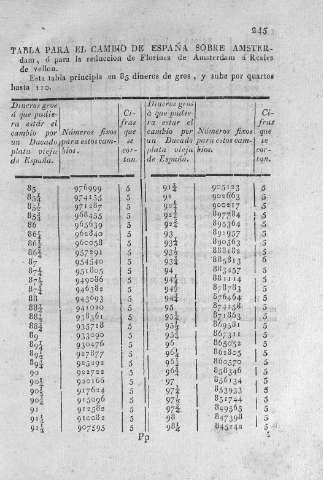 245
TABLA PARA EL CAMBIO DE ESPAÑA SOBRE AMSTER-
dam, ó para la reduccion de Florines de Amsterdam á Reales
de vellon.
Esta tabla principia en 85 dineros de gros, y sube por quartos
hasta 110.
Dineros gros á que pudiera estár el cambio por un Ducado plata vieja de España. Números fixos para estos cambios. Cifras que se cortan. Dineros gros á que pudiera estar el cambio por un Ducado plata vieja de España. Números fixos para estos cambios. Cifras que se cortan.
85 976999 5 91¾ 905123 5
85¼ 974135 5 92 902663 5
85½ 971287 5 92¼ 900217 5
85¾ 968455 5 92½ 897784 5
86 965639 5 92¾ 895364 5
86¼ 962840 5 93 892957 5
86½ 960058 5 93¼ 890563 5
86¾ 957291 5 93½ 888182 5
87 954540 5 93¾ 885813 5
87¼ 951805 5 94 883457 5
87½ 949086 5 94¼ 881114 5
87¾ 946382 5 94½ 878783 5
88 943693 5 94¾ 876464 5
88¼ 941020 5 95 874158 5
88½ 938361 5 95¼ 871863 5
88¾ 935718 5 95½ 869581 5
89 933090 5 95¾ 867311 5
89¼ 930476 5 96 865052 5
89½ 927877 5 96¼ 862805 5
89¾ 925292 5 96½ 860570 5
90 922722 5 96¾ 858346 5
90¼ 920166 5 97 856134 5
90½ 917624 5 97¼ 853933 5
90¾ 915096 5 97½ 851744 5
91 912582 5 97¾ 849565 5
91¼ 910082 5 98 847398 5
91½ 907595 5 98¼ 845242 5
Pp